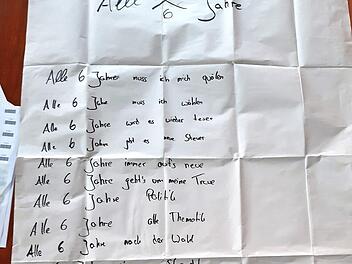 Alle 6 Jahre
Alle 6 Jahre muss ich mich quälen
Alle 6 Jahre muss ich wählen
Alle 6 Jahre wird es wieder teuer
Alle 6 Jahre gibt es neue Steuer
Alle 6 Jahre immer auf's neue
Alle 6 Jahre geht's um meine Treue
Alle 6 Jahre Politik
Alle 6 Jahre alte Thematik
Alle 6 Jahre nach der Wahl